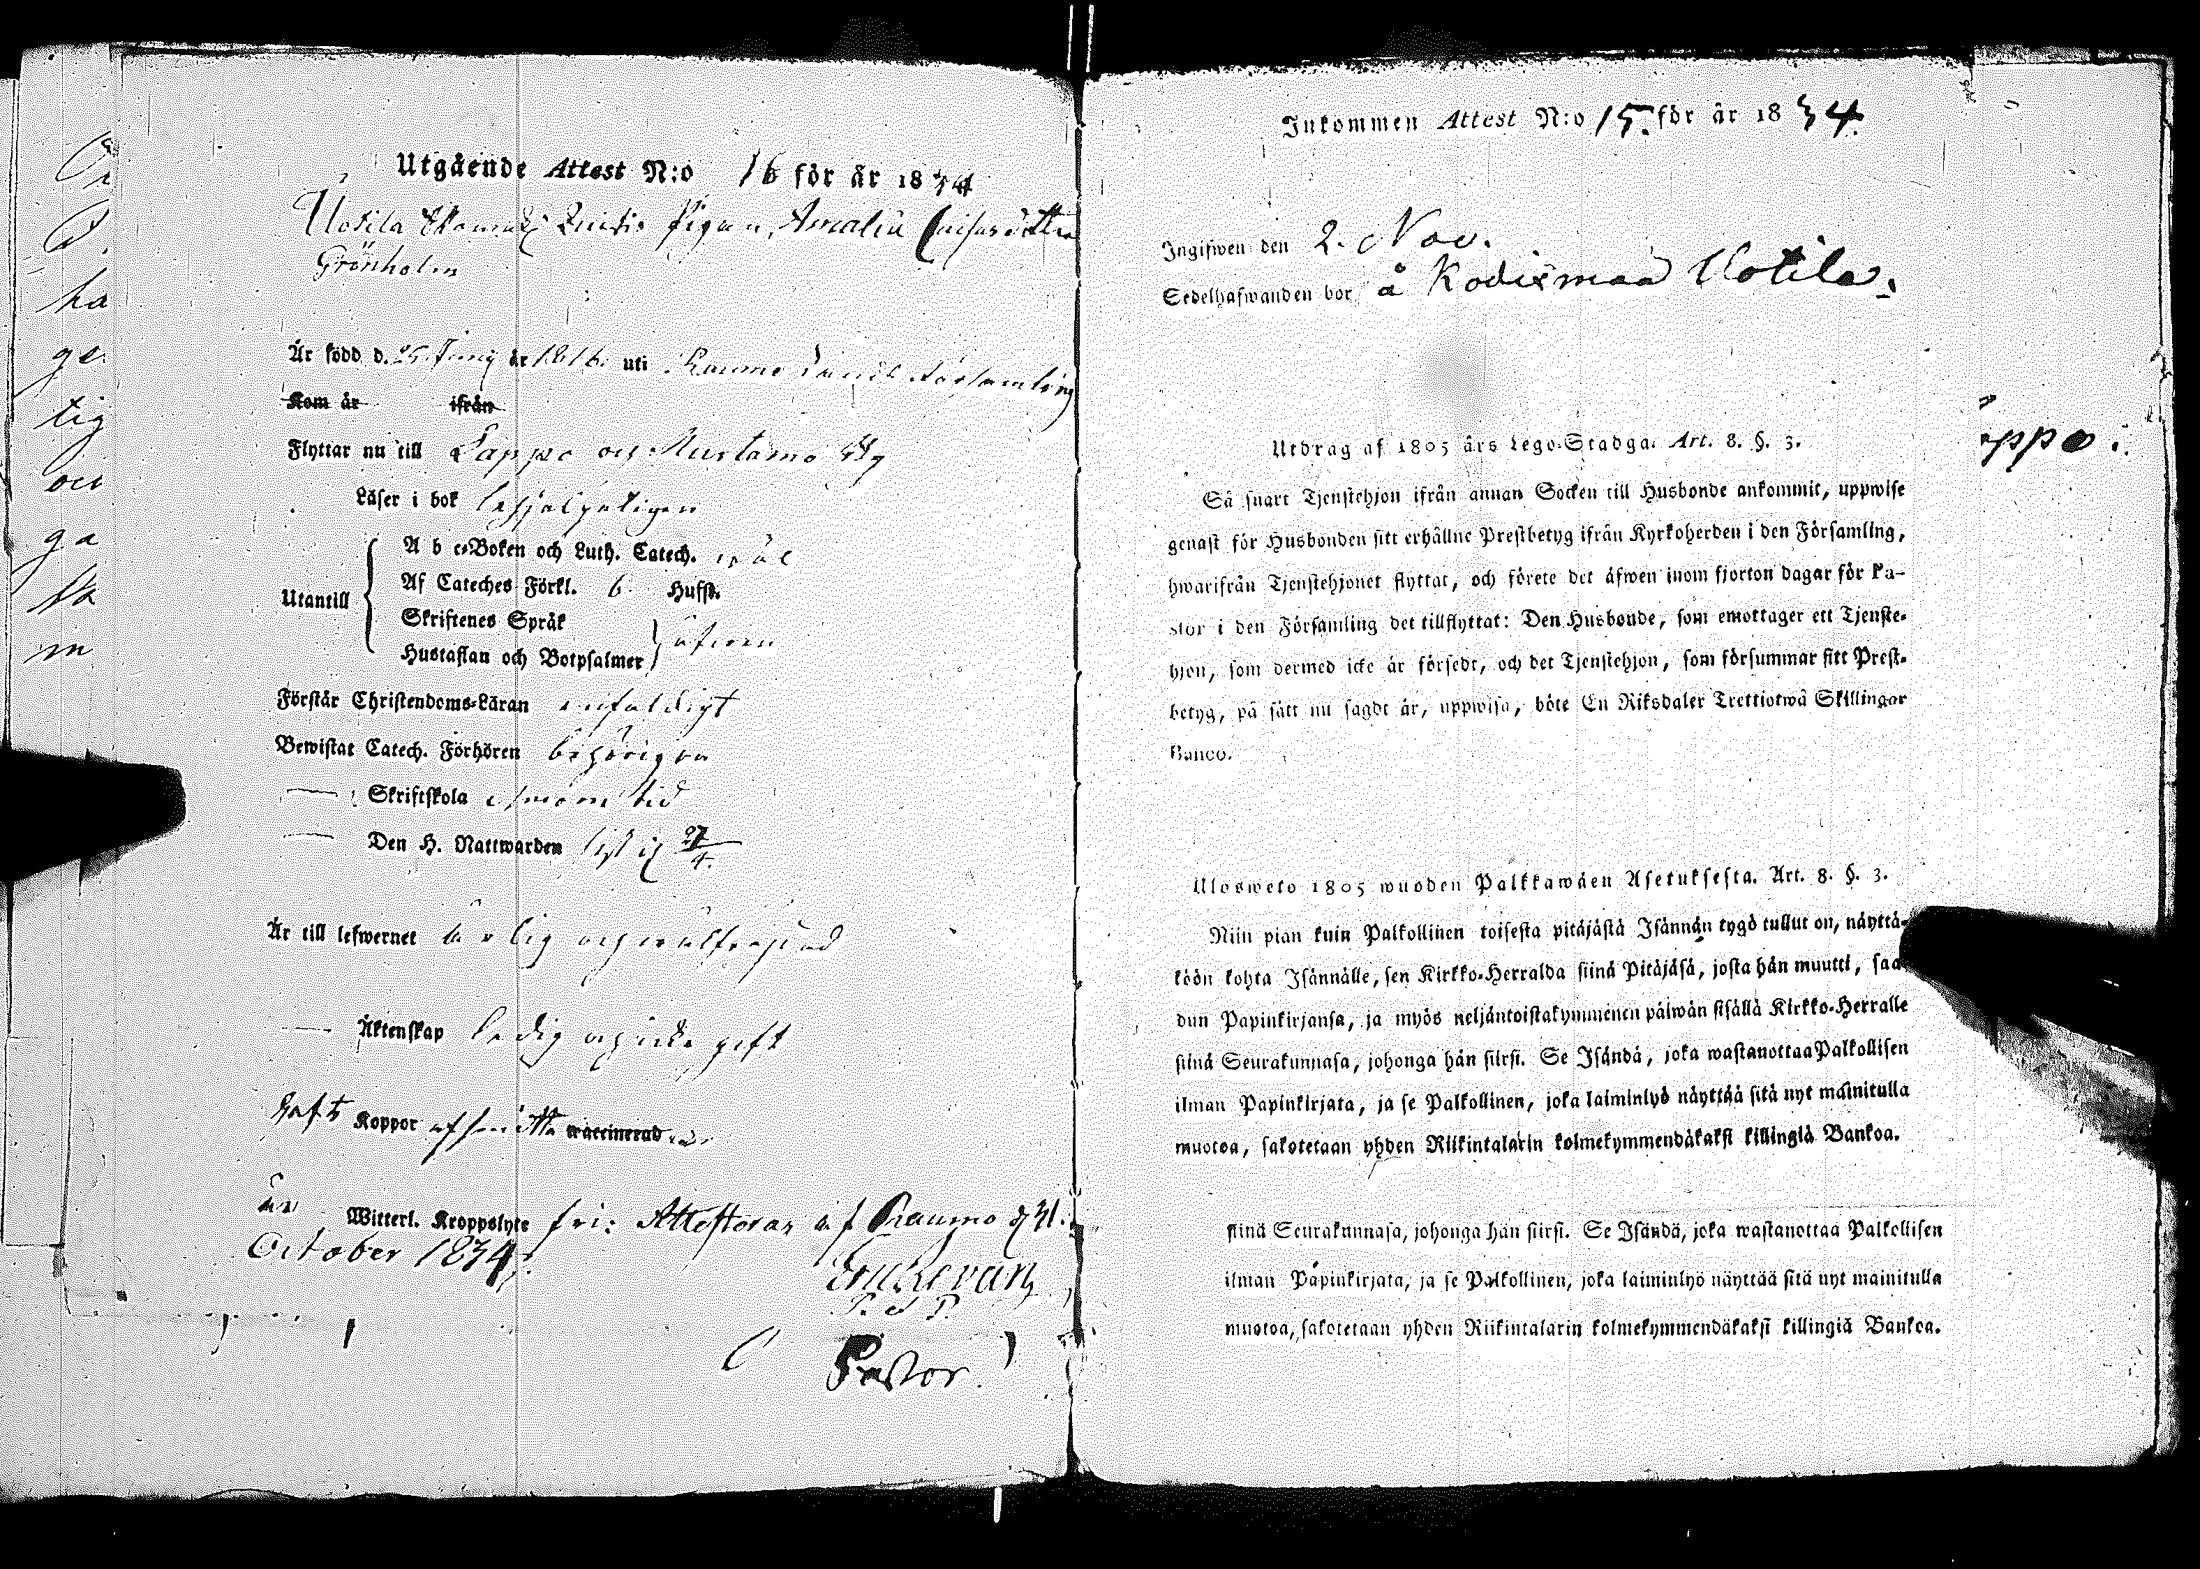 Utgående Attest N:o 16 för år 1834
Uotila pigan, Amalia
Grönholm
Är född d. 25 Junij år 1816. uti Raumo Lands Församling
Kom år ifrån
Flyttar nu till Lappo och
Läser i bok
Utantill
A b c-Boken och Luth. Catech. wäl
Af Cateches Förkl. 6 Hufst.
Skriftenes Språk
Hustaflan och Botpsalmer äfwen
Förstår Christendoms-Läran enfaldigt
Bewistat Catech. Förhören behörigen
Skriftskola tid
Den H. Nattwarden sist 27/4.
Är till lefwernet ärlig och wälfrejdad
Äktenskap ledig och icke gift
haft Koppor waccinerad
är Witterl. Kroppslyte fri: Attesteras af Raumo d 31.
October 1834
Pastor.
Inkommen Attest N:o 15. för år 1834.
Ingifwen den 2. Nov.
Sedelhafwanden bor å Kodixmaa Uotila.
Utdrag af 1805 års Lego-Stadga. Art. 8. §. 3.
Så snart Tjenstehjon ifrån annan Socken till Husbonde ankommit, uppwise
genast för Husbonden sitt erhållne Prestbetyg ifrån Kyrkoherden i den Församling,
hwarifrån Tjenstehjonet flyttat, och förete det äfwen inom fjorton dagar för Pa-
stor i den Församling det tillflyttat: Den Husbonde, som emottager ett Tjenste-
hjon, som dermed icke är försedt, och det Tjenstehjon, som försummar sitt Prest-
betyg, på sätt nu sagdt är, uppwisa, böte En Riksdaler Trettiotwå Skillingar
Banco.
Ulosweto 1805 wuoden Palkkawäen Asetuksesta. Art. 8. §. 3.
Niin pian kuin Palkollinen toisesta pitäjästä Isännän tygö tullut on, näyttä-
köön kohta Isännälle, sen Kirkko-Herralda siinä Pitäjäsä, josta hän muutti, saa-
dun Papinkirjansa, ja myös neljäntoistakymmenen päiwän sisällä Kirkko-Herralle
siinä Seurakunnasa, johonga hän siirsi. Se Isändä, joka wastanottaa Palkollisen
ilman Papinkirjata, ja se Palkollinen, joka laiminlyö näyttää sitä nyt mainitulla
muotoa, sakotetaan yhden Riikintalarin kolmekymmendäkaksi killingiä Bankoa.
siinä Seurakunnasa, johonga hän siirsi. Se Isändä, joka wastanottaa Palkollisen
ilman Papinkirjata, ja se Palkollinen, joka laiminlyö näyttää sitä nyt mainitulla
muotoa, sakotetaan yhden Riikintalarin kolmekymmendäkaksi killingiä Bankoa.